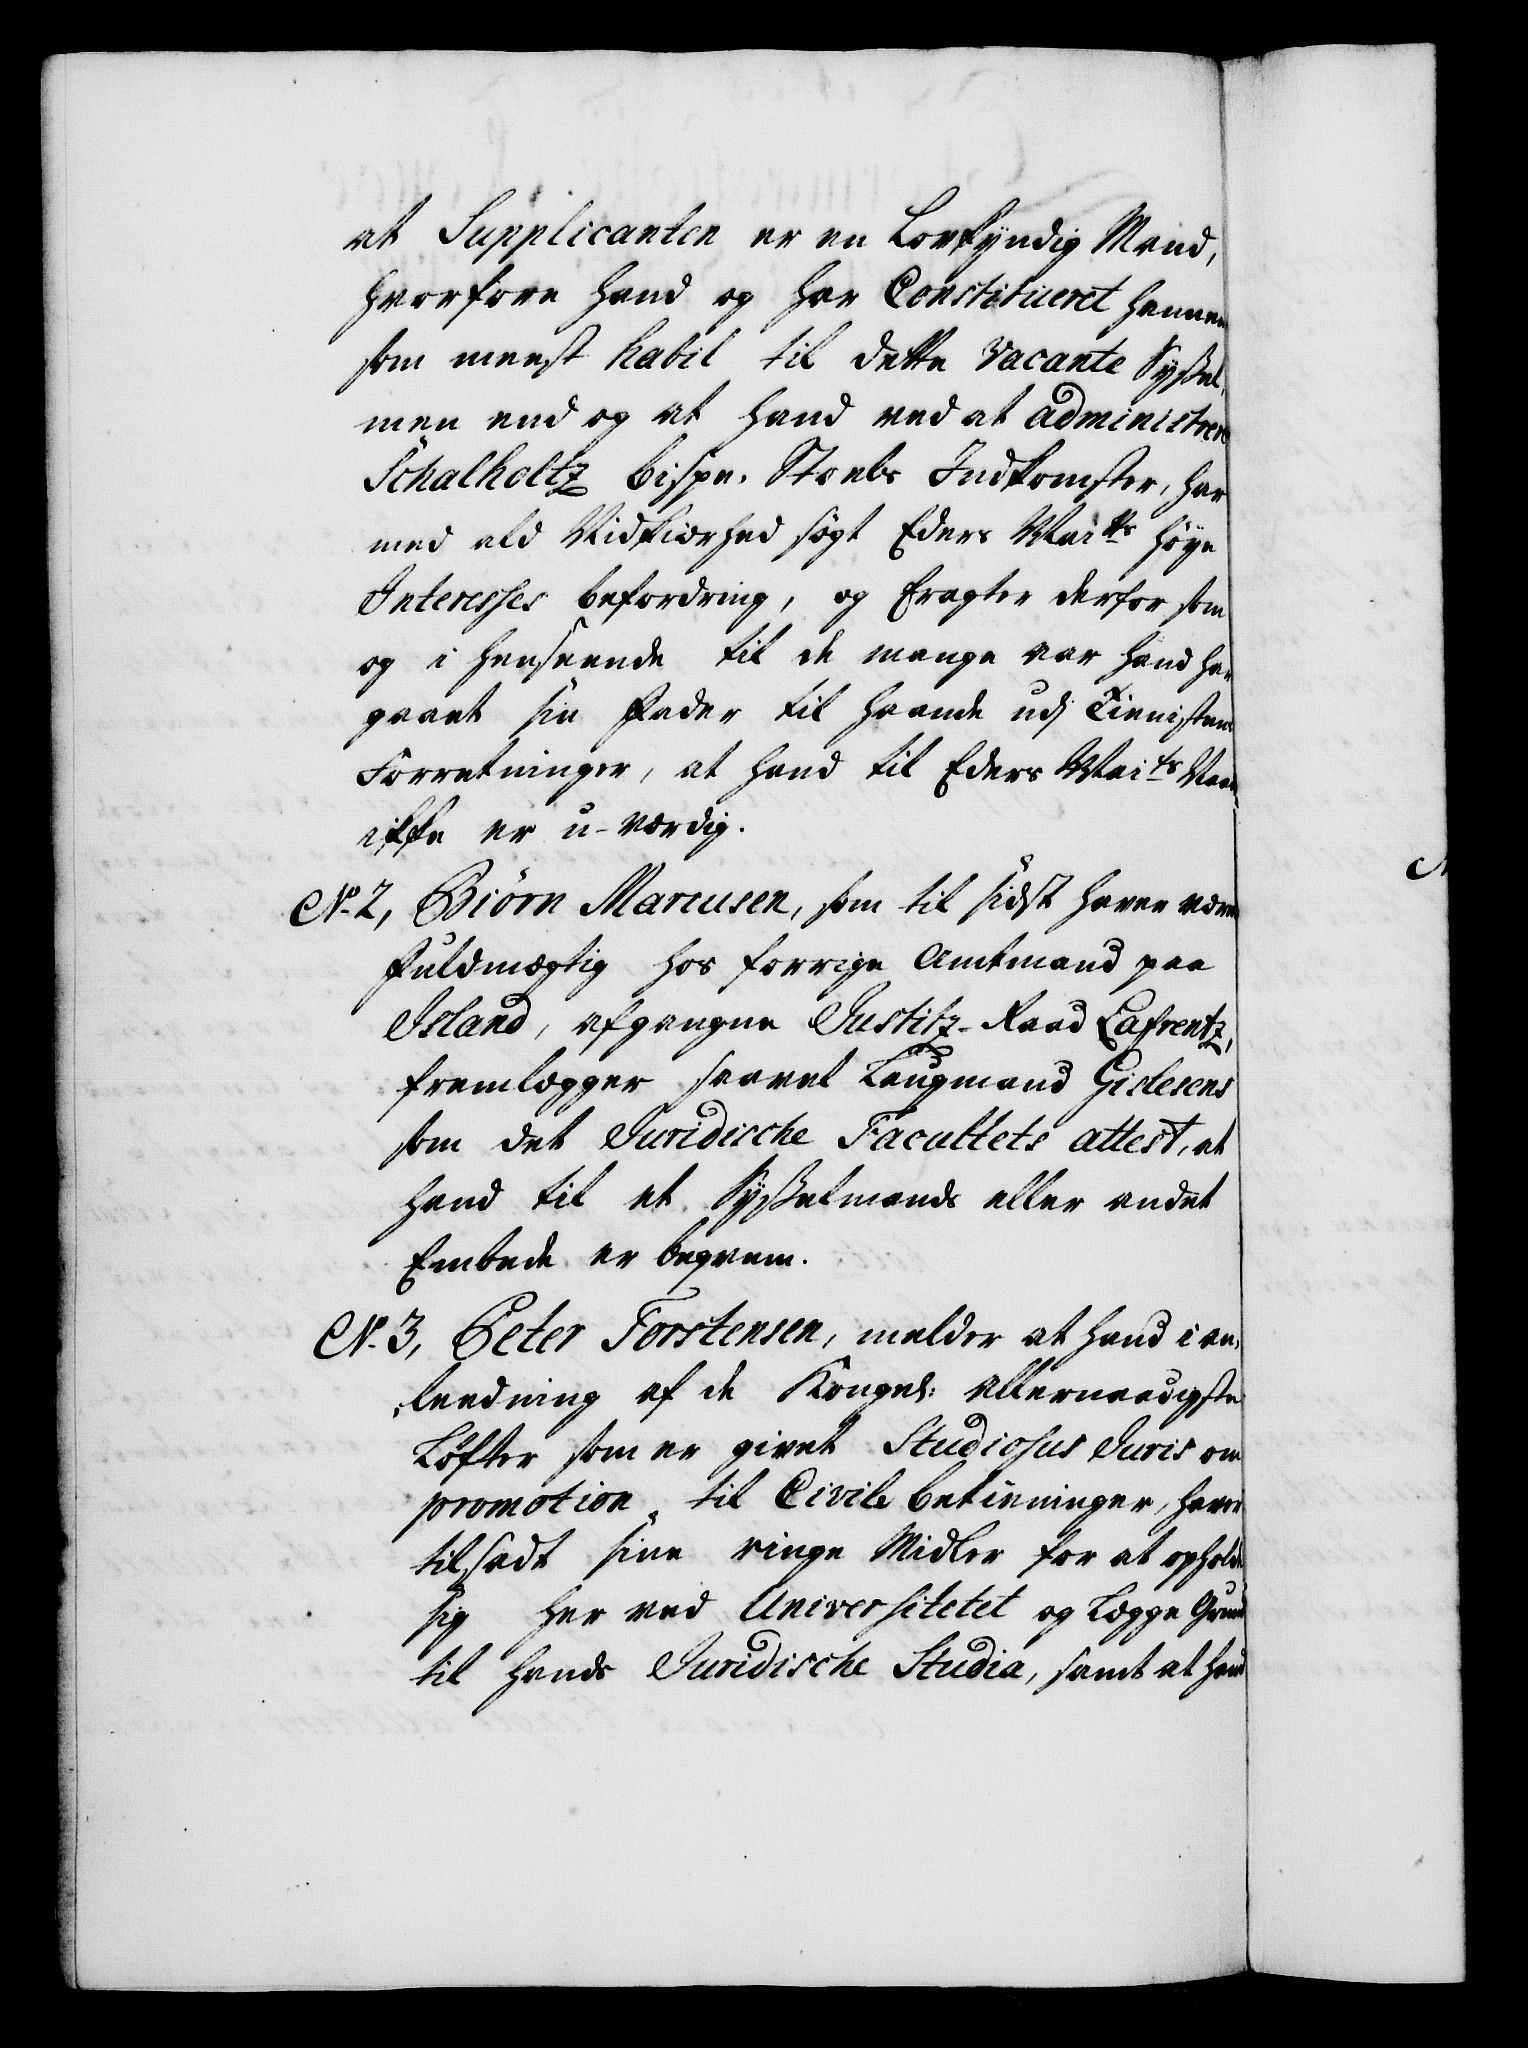 at Supplicanten er en Lovkyndig Mand,
hvorfore hand og har Constitueret hannem
som meest habil til dette vacante Syßel,
men end og at hand ved at administrere
Schalholtz bispe-Stoels Indkomster, har
med ald Vidkiørhed søgt Eders Maits høye
Interesses befordring, og Eragter derfor som
og i henseende til de mange aar hand har
gaaet sin Fader til haande udj Tienistens
Forretninger, at hand til Eders Maits Naade
ikke er u-værdig.
N. 2, Biörn Marcusen, som til sidst haver været
Fuldmægtig hos forrige Amtmand paa
Island, afgangne Justitz-Raad Lafrentz,
fremlegger saavel Laugmand Gislesens
som det Juridische Facultets attest, at
hand til et Sysselmands eller andet
Embede er beqvem.
N. 3, Peter Torstensen, melder at hand i an-
ledning af de Kongel: allernaadigste
Løfter som er givet Studiosus Juris om
promotion til Civile betieninger, haver
tilsadt sine ringe Midler for at opholde
sig her ved Universitetet og Legge Grund
til hands Juridische Studia, samt at hand